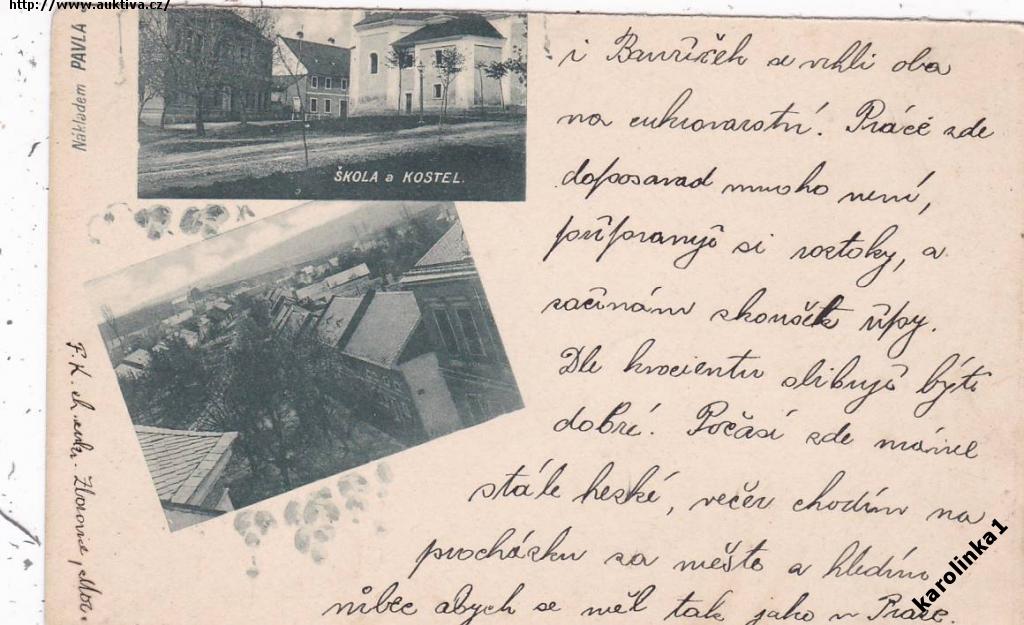 http://www.auktiva.cz/
Nákladem PAVLA
ŠKOLA a KOSTEL.
i se vrhli oba
na cukrovarství. Práce zde
doposavad mnoho není,
připravuji si roztoky, a
začínám zkoušek řípy.
Dle kvocientu slibuji býti
dobré. Počasí zde máme
stále hezké, večer chodím na
procházku za město a hledím
abych se měl tak jako v Praze.
F. K. Zborovice, Mor.
karolinka1